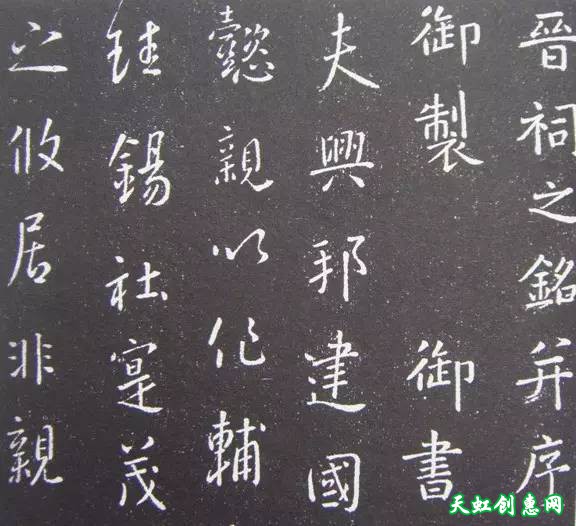 晉祠之銘并序
御製 御書
夫興邦建國
懿親以作輔
珪錫社寔茂
之攸居非親
天虹创惠网